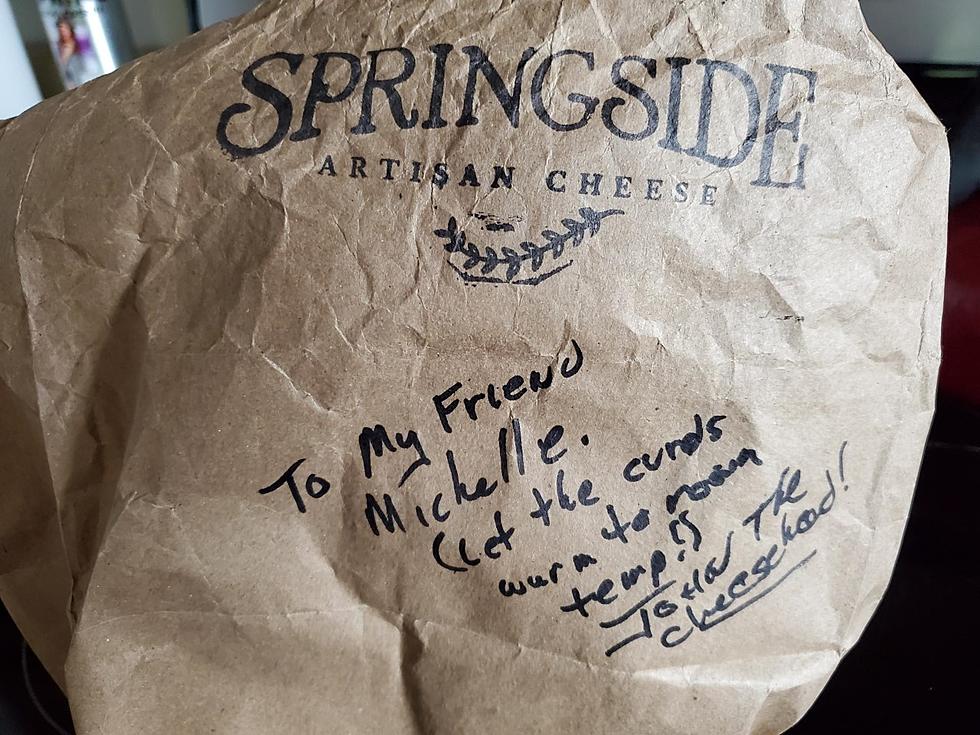 SPRINGSIDE
ARTISAN CHEESE
To My Friend
Michelle.
(Let the curds
warm to room
temp!)
John The
Cheesehead!